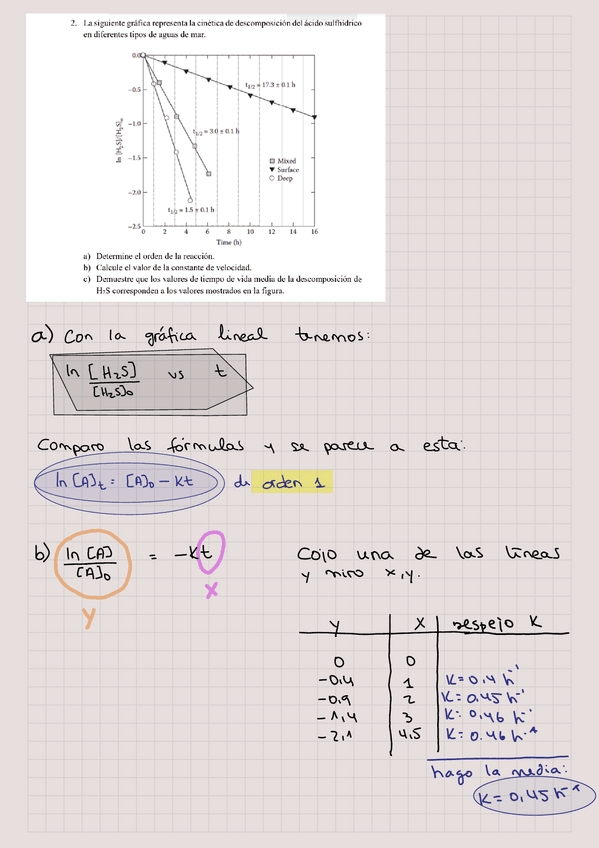 2. La siguiente gráfica representa la cinética de descomposición del ácido sulfhídrico
en diferentes tipos de aguas de mar.
0.0
t1/2 = 17.3 ± 0.1 h
−0.5
−1.0
t1/2 = 3.0 ± 0.1 h
ln [H2S]/[H2S]o
−1.5
Mixed
Surface
Deep
−2.0
t1/2 = 1.5 ± 0.1 h
−2.5
0 2 4 6 8 10 12 14 16
Time (h)
a) Determine el orden de la reacción.
b) Calcule el valor de la constante de velocidad.
c) Demuestre que los valores de tiempo de vida media de la descomposición de
H2S corresponden a los valores mostrados en la figura.
a) Con la gráfica lineal tenemos:
ln [H2S] vs t
[H2S]o
Comparo las fórmulas y se parece a esta:
ln [A]t = [A]o − Kt de orden 1
b) ln [A] = −Kt Cojo una de las líneas
[A]o y miro x,y.
y x
y x Despejo K
0 0
−0,4 1 K=0,4 h⁻¹
−0,9 2 K=0,45 h⁻¹
−1,4 3 K=0,46 h⁻¹
−2,1 4,5 K=0.46 h⁻¹
hago la media:
K=0,45 h⁻¹